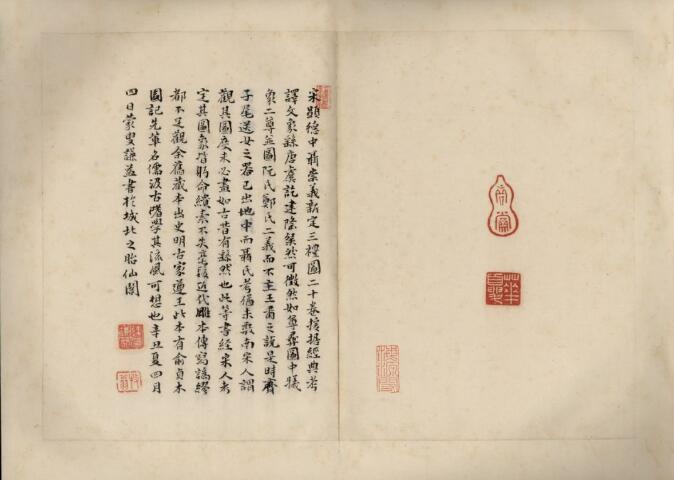 宋顯德中聶崇義新定三禮圖二十卷援据經典考
譯文象繇唐虞訖建隆粲然可徵然如尊彝圖中犧
象二尊並圖阮氏鄭氏二義而不主王肅之說是時齊
子尾送女之器已出地中而聶氏考猶未覈南宋人謂
觀其圖度未必盡如古昔有繇然也此等書經宋人考
定其圖象皆躬命繢素不失毫髮近代雕本傳寫譌繆
都不足觀余舊藏本出史明古家遜王此本有俞貞木
圖記先輩名儒汲古嗜學其流風可想也辛丑夏四月
四日蒙叟謙益書於城北之胎仙閣